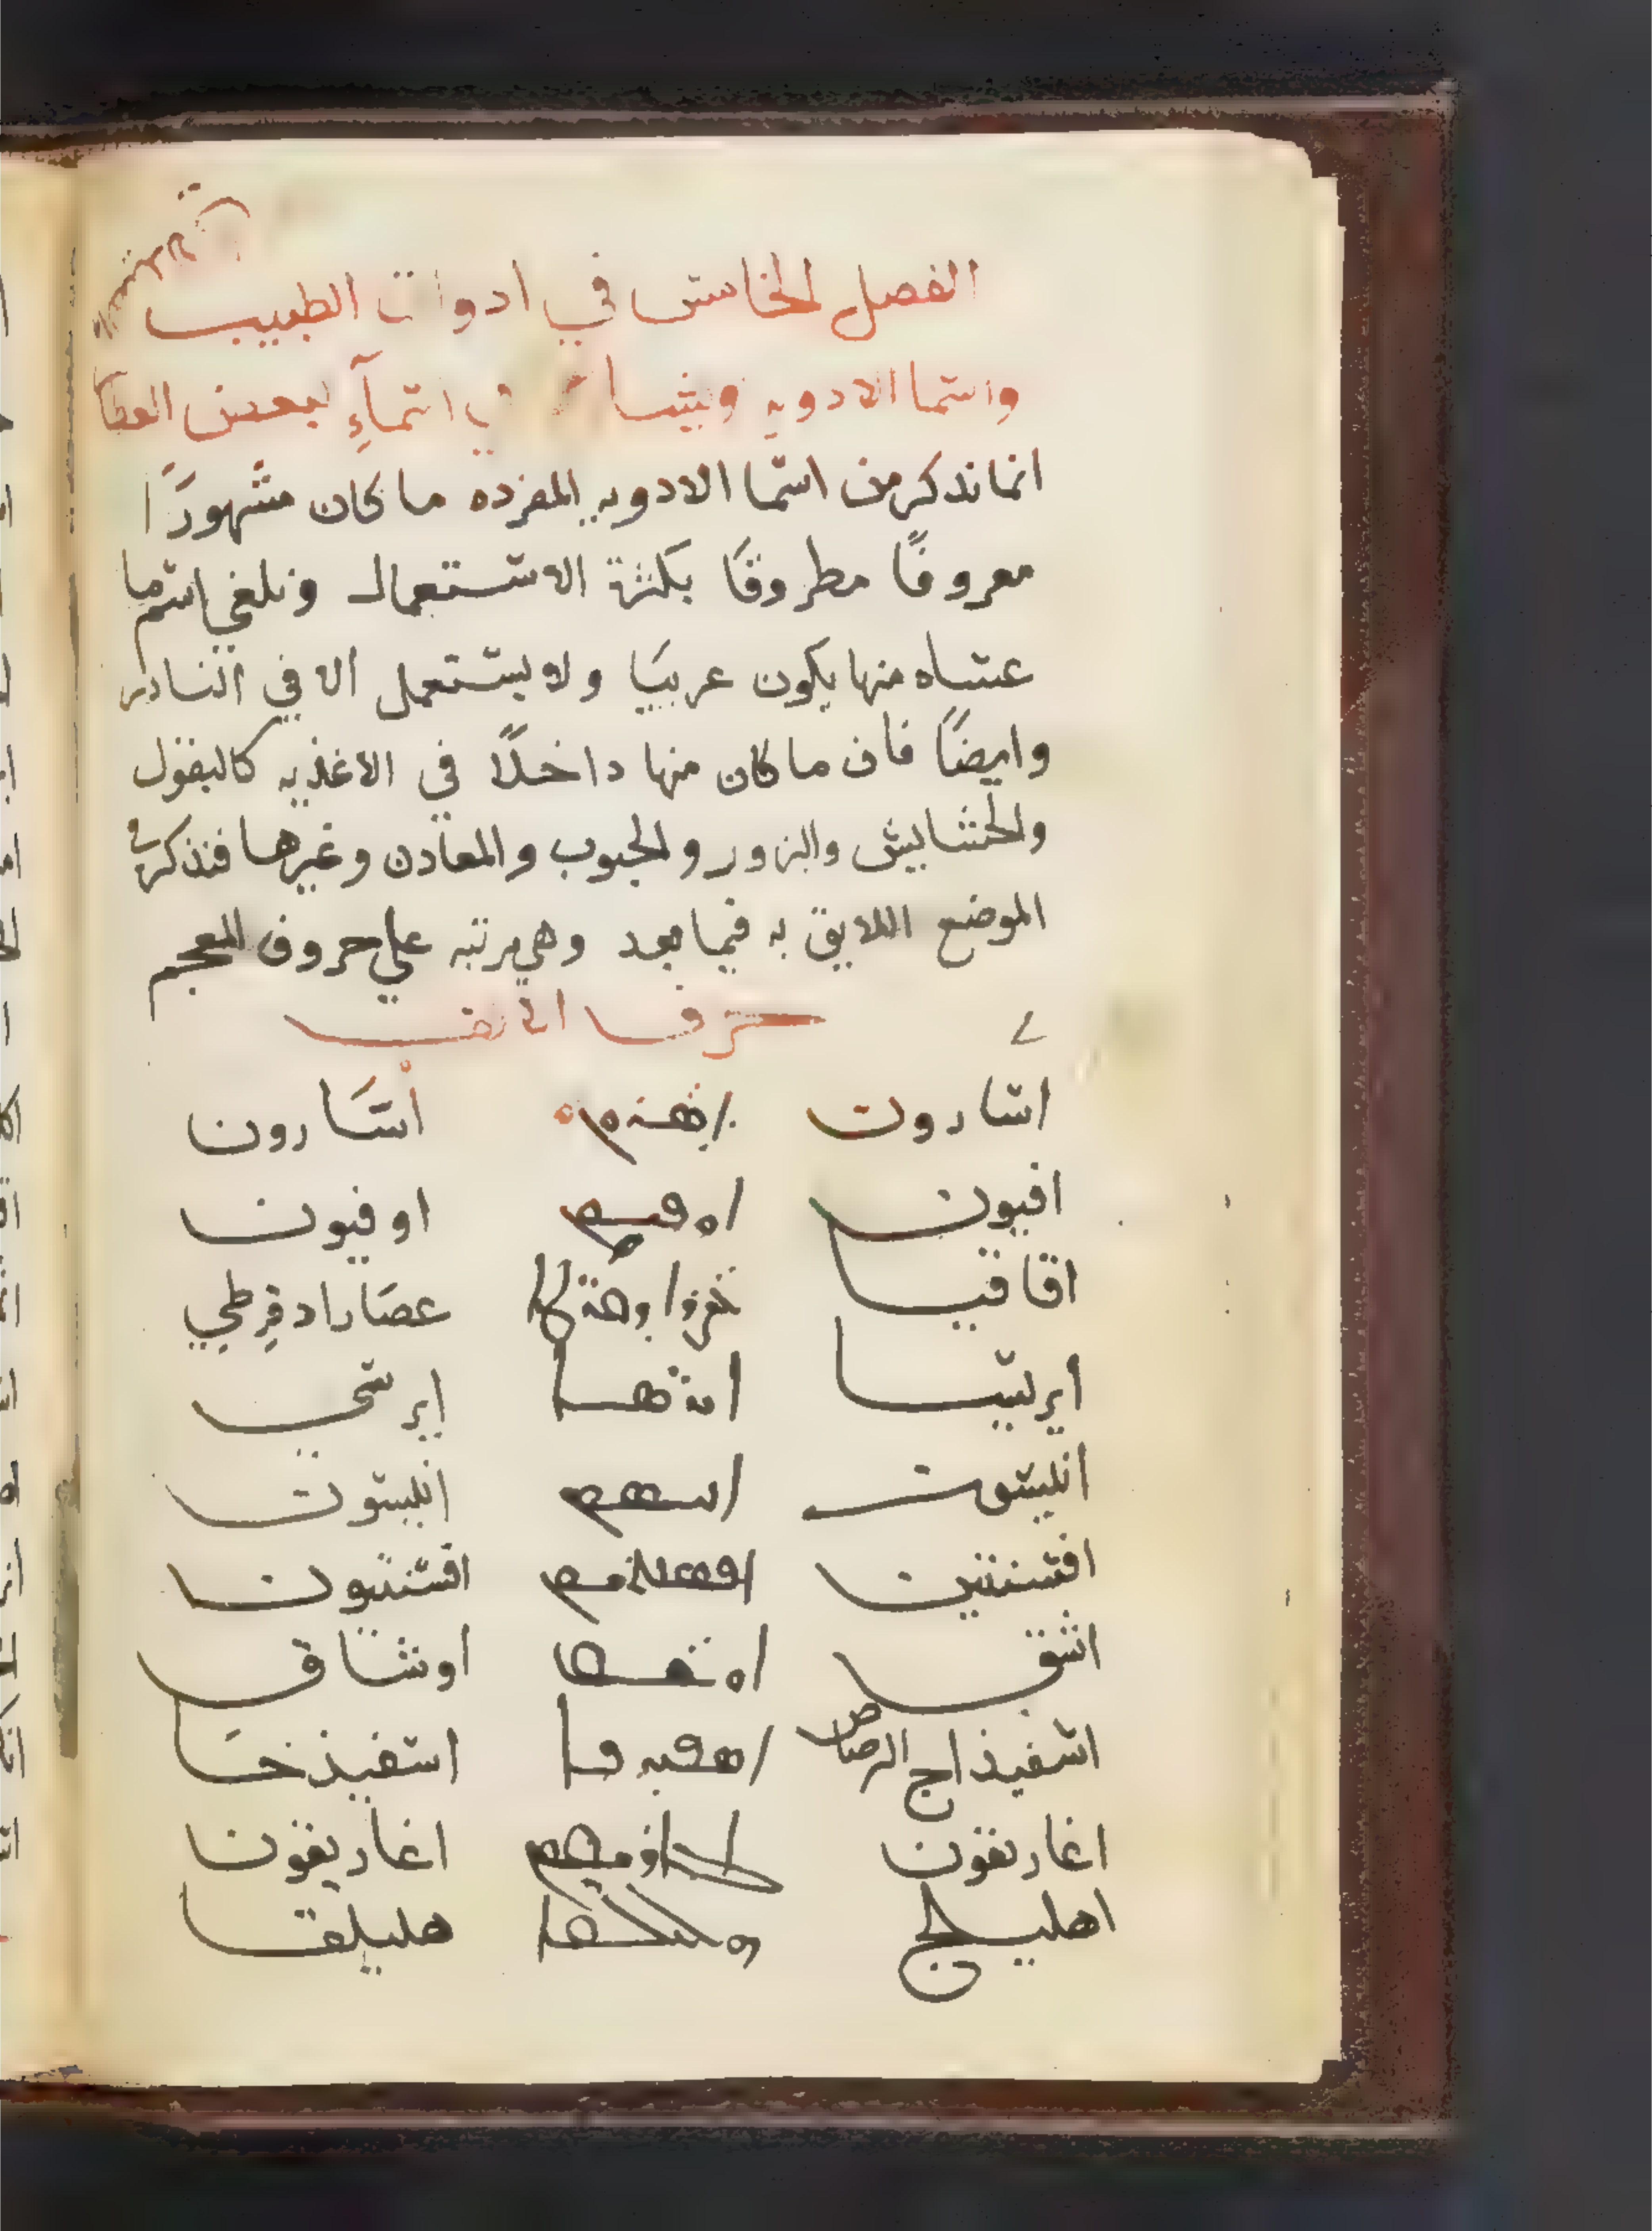 الفصل الخامس في ادوات الطبيب
واسما الادويه وينسا في اسمآءِ بعض العقا
انما نذكر من اسما الادويه المفرده ما كان مشهورًا
معروفًا مطروقًا بكثرة الاستعمال ونلغي اسم ما
عساه منها يكون غريبًا ولا يستعمل الا في النادر
وايضًا فان ما كان منها داخلًا في الاغذيه كالبقول
والحشايش والبزور والحبوب والمعادن وغيرها فنذكر في
الموضع اللايق به فيما بعد وهي مرتبه علي حروف المعجم
حرف الالف
اسارون ܐܣܪܘܢ اسَارون
افيون ܐܘܦܝܘܢ اوفيون
اقاقيا عصَارا دقرطي
ايرسا ܐܝܪܣܐ ايرسي
انيسون ܐܢܝܣܘܢ انيسون
افسنتين افسنتيون
اشق ܐܘܫܩ اوشاق
اسفيذاج الرصاص اسفيذخَا
اغاريقون اغاريقون
اهليلج ܗܠܝܠܩܐ هليلقا